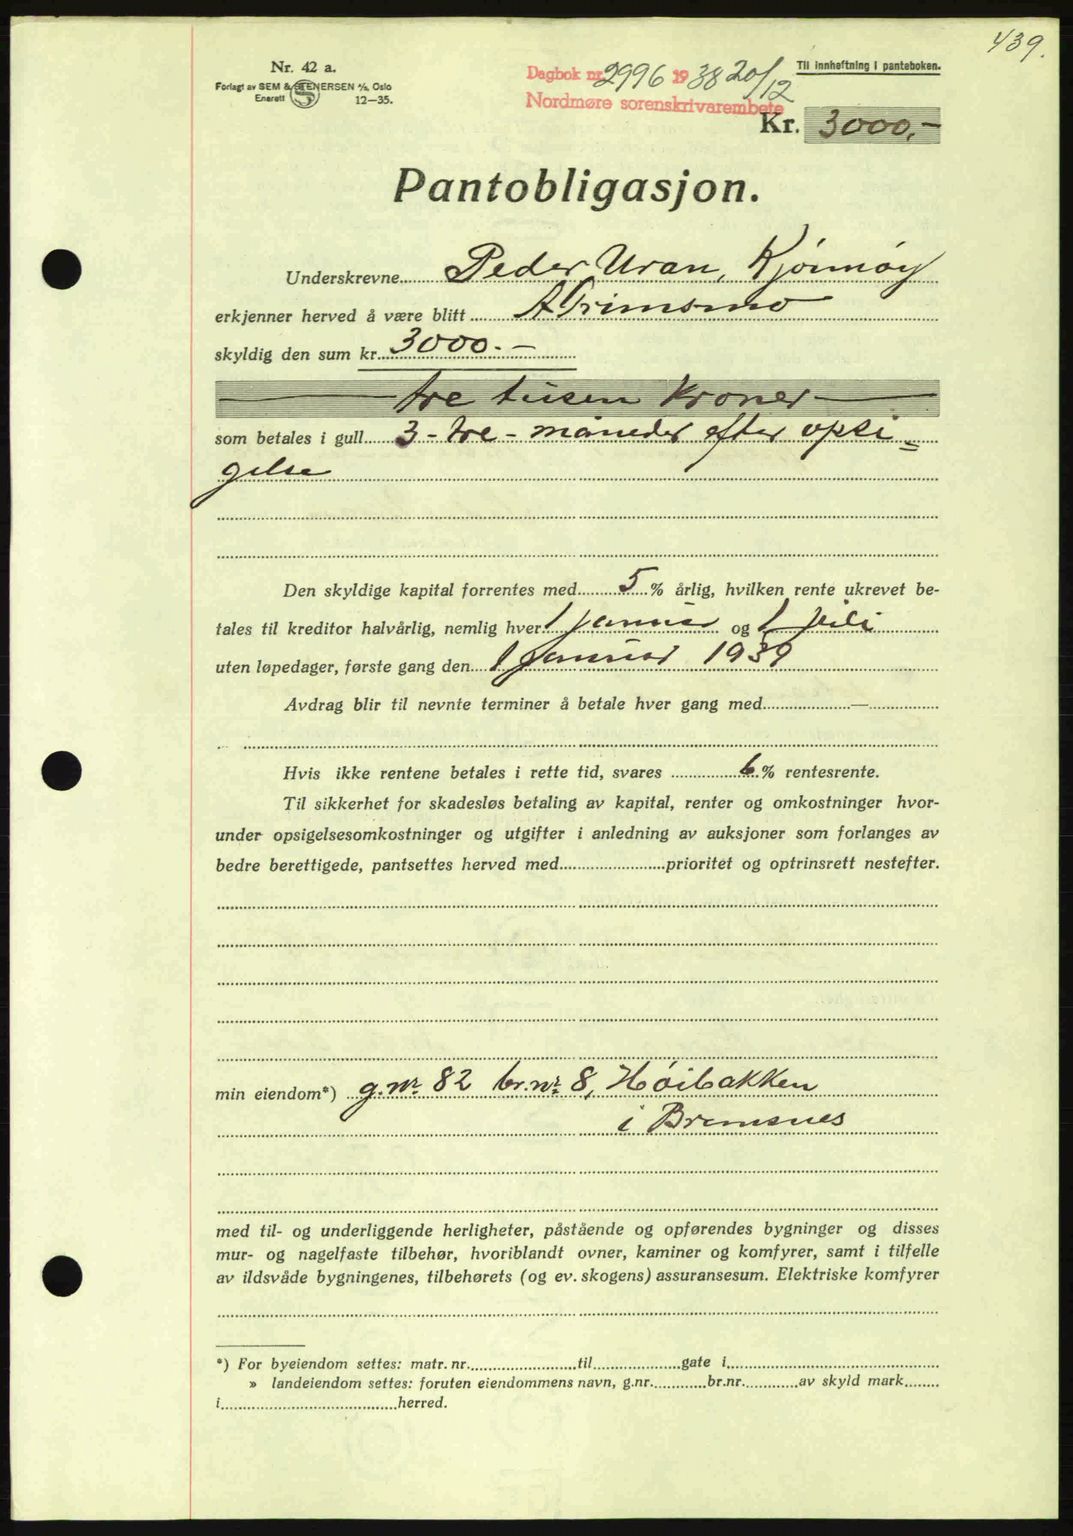 439.
Nr. 42 a.
Forlagt av SEM & STENERSEN A/S, Oslo
Enerett 12—35.
Dagbok nr. 2996 1938 20/12
Nordmøre sorenskrivarembete
Til innheftning i panteboken.
Kr. 3000,-
Pantobligasjon.
Underskrevne Peder Uran,
erkjenner herved å være blitt A Grimsmo
skyldig den sum kr. 3000.-
— tre tusen kroner —
som betales i gull 3 - tre - måneder efter opsi=
gelse
Den skyldige kapital forrentes med 5 % årlig, hvilken rente ukrevet be-
tales til kreditor halvårlig, nemlig hver 1 januar og 1 juli
uten løpedager, første gang den 1 januar 1939
Avdrag blir til nevnte terminer å betale hver gang med —
Hvis ikke rentene betales i rette tid, svares 6 % rentesrente.
Til sikkerhet for skadesløs betaling av kapital, renter og omkostninger hvor-
under opsigelsesomkostninger og utgifter i anledning av auksjoner som forlanges av
bedre berettigede, pantsettes herved med prioritet og optrinsrett nestefter.
min eiendom*) g.nr. 82 br.nr. 8, Høibakken
i Bremsnes
med til- og underliggende herligheter, påstående og opførendes bygninger og disses
mur- og nagelfaste tilbehør, hvoriblandt ovner, kaminer og komfyrer, samt i tilfelle
av ildsvåde bygningenes, tilbehørets (og ev. skogens) assuransesum. Elektriske komfyrer
*) For byeiendom settes: matr. nr. til gate i
» landeiendom settes: foruten eiendommens navn, g.nr. br.nr. av skyld mark
i herred.